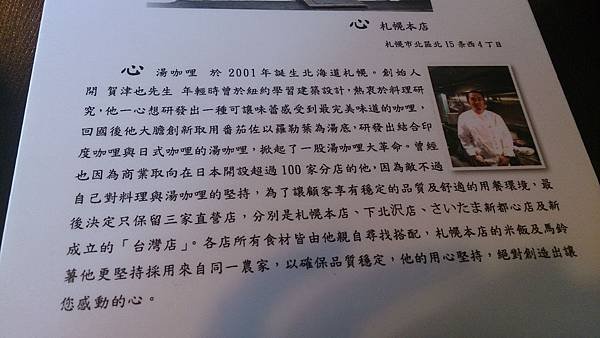 心 札幌本店
札幌市北區北15条西4丁目
心 湯咖哩 於 2001年誕生北海道札幌。創始人
開 賀津也先生 年輕時曾於紐約學習建築設計,熱衷於料理研
究,他一心想研發出一種可讓味蕾感受到最完美味道的咖哩,
回國後他大膽創新取用番茄佐以羅勒葉為湯底,研發出結合印
度咖哩與日式咖哩的湯咖哩,掀起了一股湯咖哩大革命。曾經
也因為商業取向在日本開設超過100家分店的他,因為敵不過
自己對料理與湯咖哩的堅持,為了讓顧客享有穩定的品質及舒適的用餐環境,最
後決定只保留三家直營店,分別是札幌本店、下北沢店、さいたま新都心店及新
成立的「台灣店」。各店所有食材皆由他親自尋找搭配,札幌本店的米飯及馬鈴
薯他更堅持採用來自同一農家,以確保品質穩定,他的用心堅持,絕對創造出讓
您感動的心。